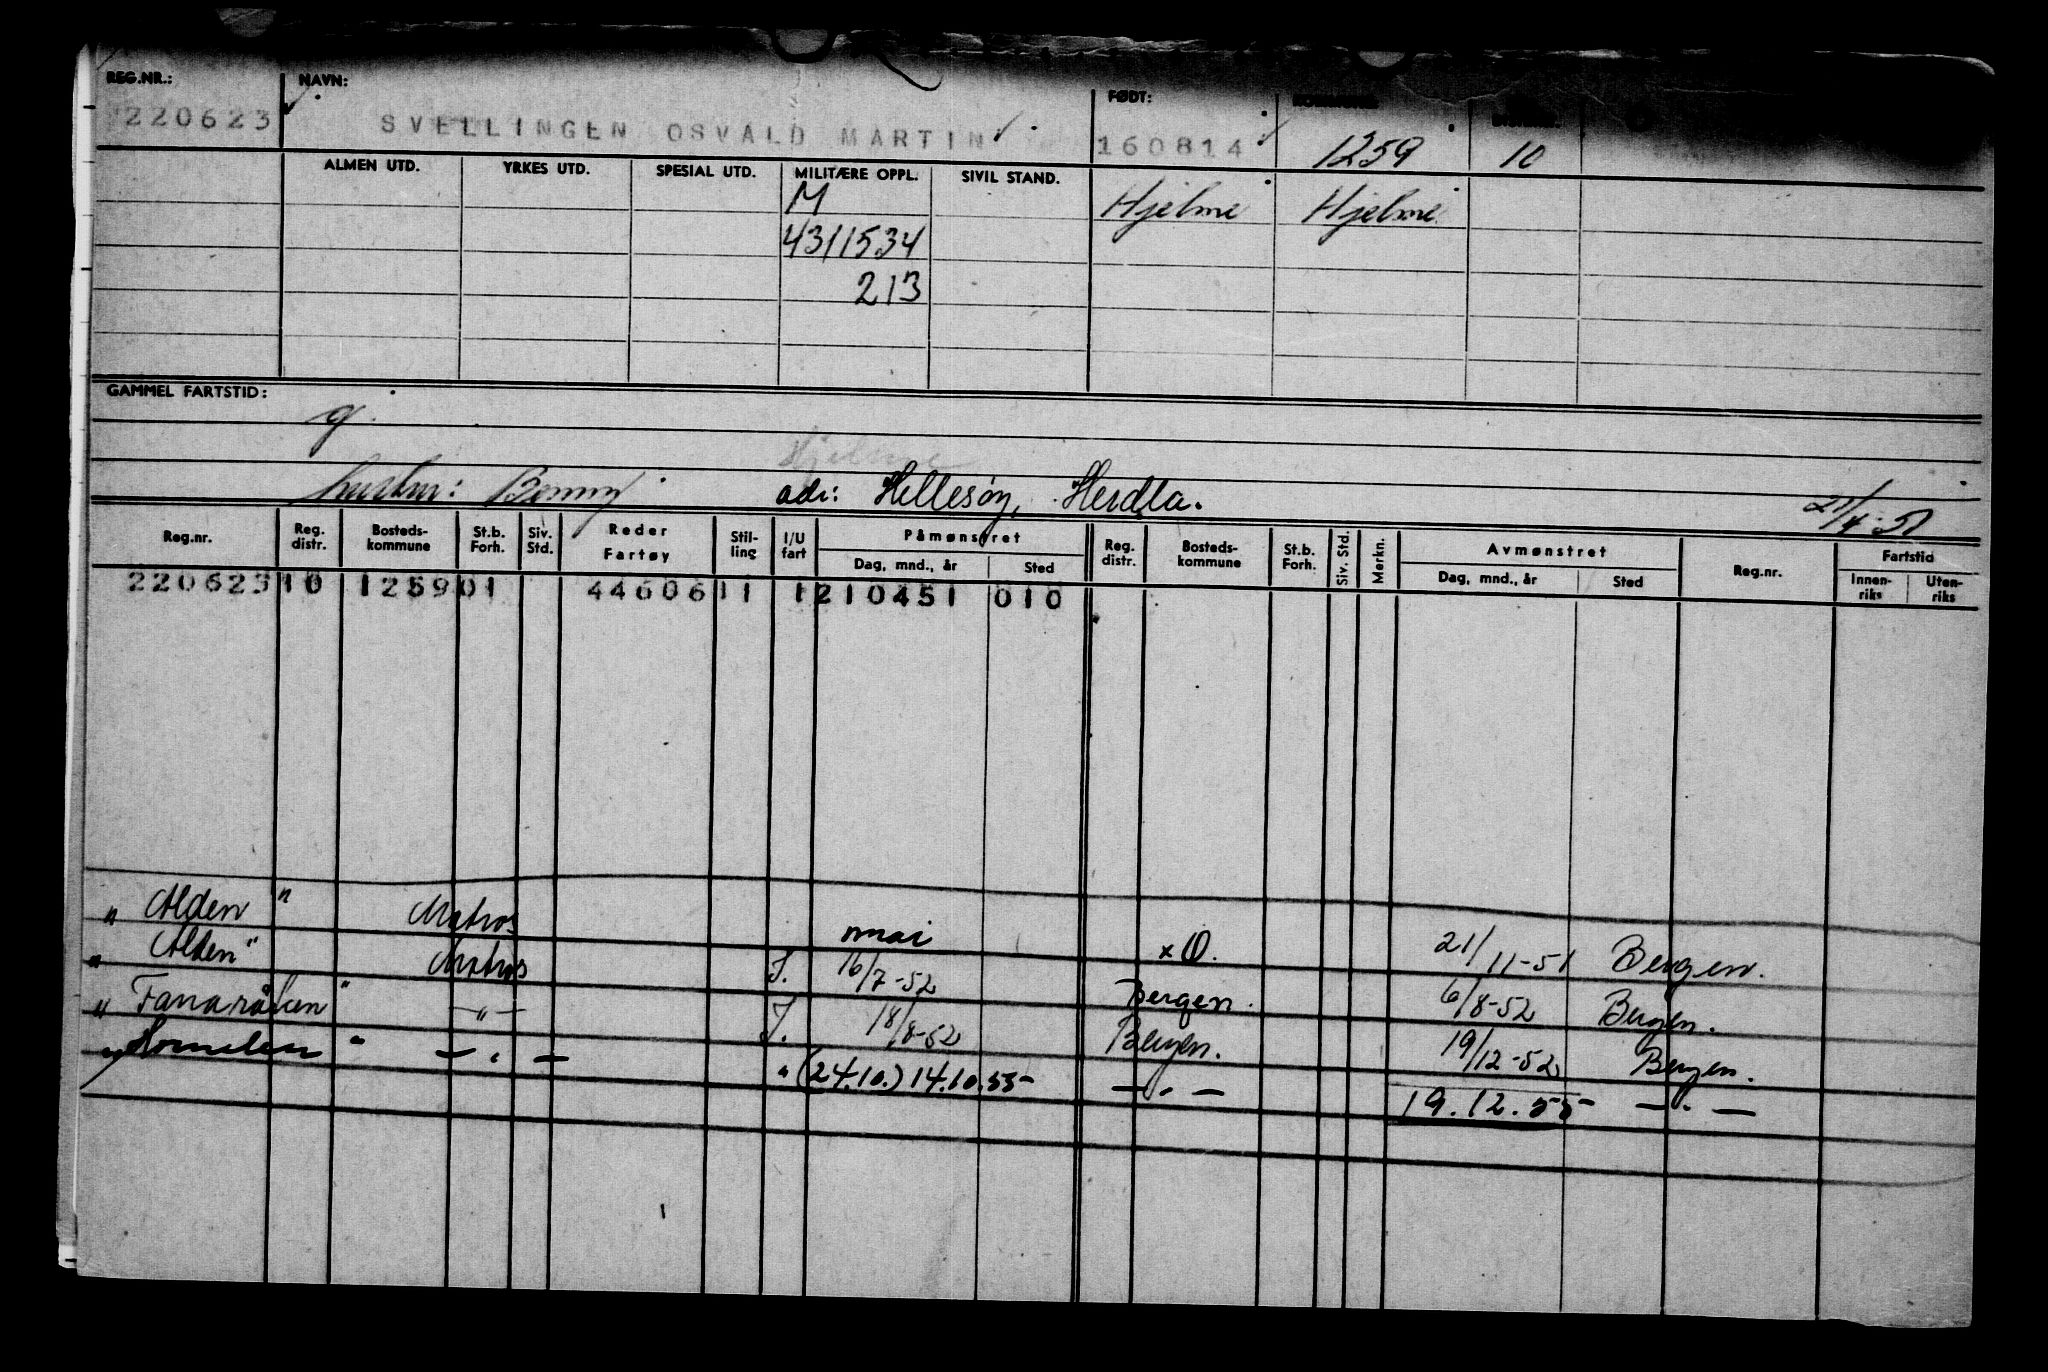 REG.NR.: NAVN: FØDT:
220623 SVELLINGEN OSVALD MARTIN 160814 1259 10
ALMEN UTD. YRKES UTD. SPESIAL UTD. MILITÆRE OPPL. SIVIL STAND.
M Hjelme Hjelme
4311534
213
GAMMEL FARTSTID:
g
Hjelme
hustru: Benny adr: Hellesøy, Herdla. 21/4-51
Reg.nr. Reg. distr. Bosteds-kommune St.b. Forh. Siv. Std. Reder Fartøy Stil-ling I/U fart Påmønstret Dag, mnd., år Sted Reg. distr. Bosteds-kommune St.b. Forh. Siv. Std. Merkn. Avmønstret Dag, mnd., år Sted Reg.nr. Fartstid Innen-riks Uten-riks
220623 10 1259 01 44606 11 1 210451 010
" Alden " Matros mai x O. 21/11-51 Bergen.
" Alden" Matros I. 16/7-52 Bergen. 6/8-52 Bergen.
" Fanaråken " —"— I. 18/8-52 Bergen. 19/12-52 Bergen.
" Hornelen " —"— " (24.10.) 14.10.55 —"— 19.12.55 —"—